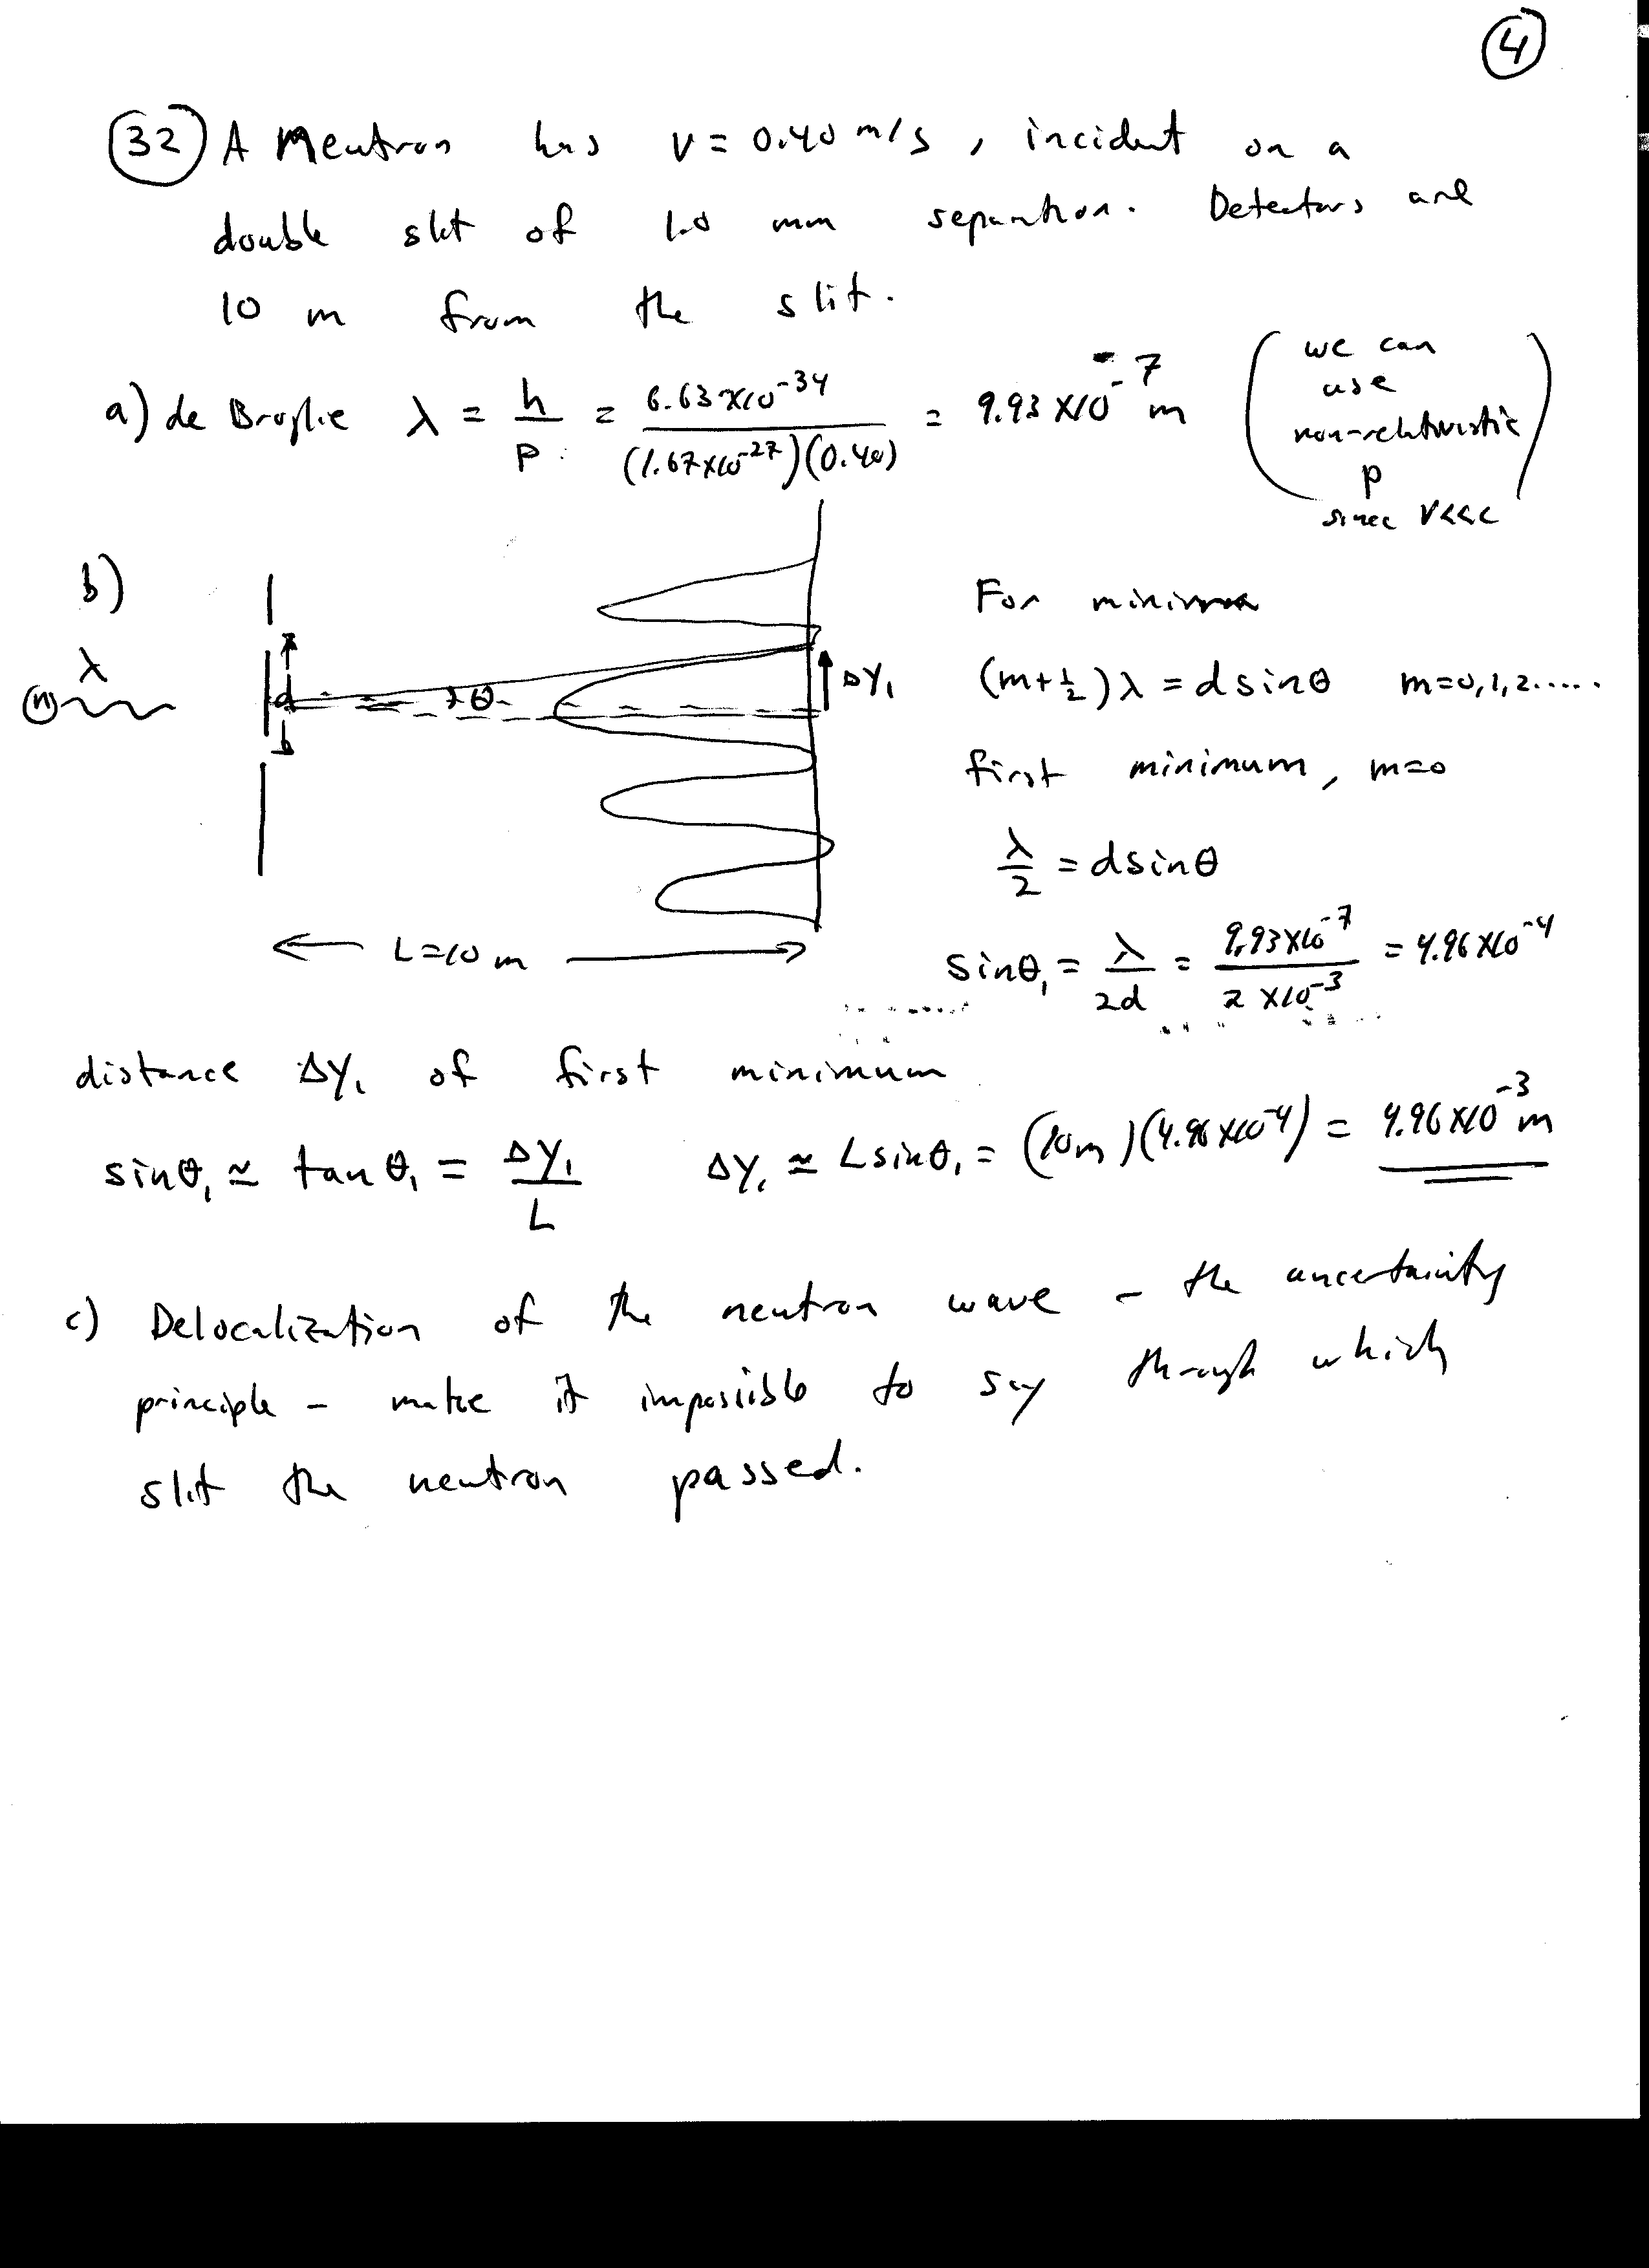 4
32 A Neutron has v = 0.40 m/s , incident on a
double slit of 1.0 mm separation. Detectors are
10 m from the slit.
a) de Broglie λ = h/p = 6.63×10⁻³⁴/(1.67×10⁻²⁷)(0.40) = 9.93 ×10⁻⁷ m
(we can
use
non-relativistic
p
since v<<c)
b)
λ
n
d
θ
ΔY₁
L=10 m
For minima
(m+½)λ = d sinθ m=0,1,2.....
first minimum, m=0
λ/2 = d sinθ
sinθ₁ = λ/2d = 9.93×10⁻⁷/2 ×10⁻³ = 4.96 ×10⁻⁴
distance ΔY₁ of first minimum
sinθ₁ ≃ tan θ₁ = ΔY₁/L ΔY₁ ≃ L sinθ₁ = (10m)(4.96 ×10⁻⁴) = 4.96 ×10⁻³ m
c) Delocalization of the neutron wave - the uncertainty
principle - make it impossible to say through which
slit the neutron passed.